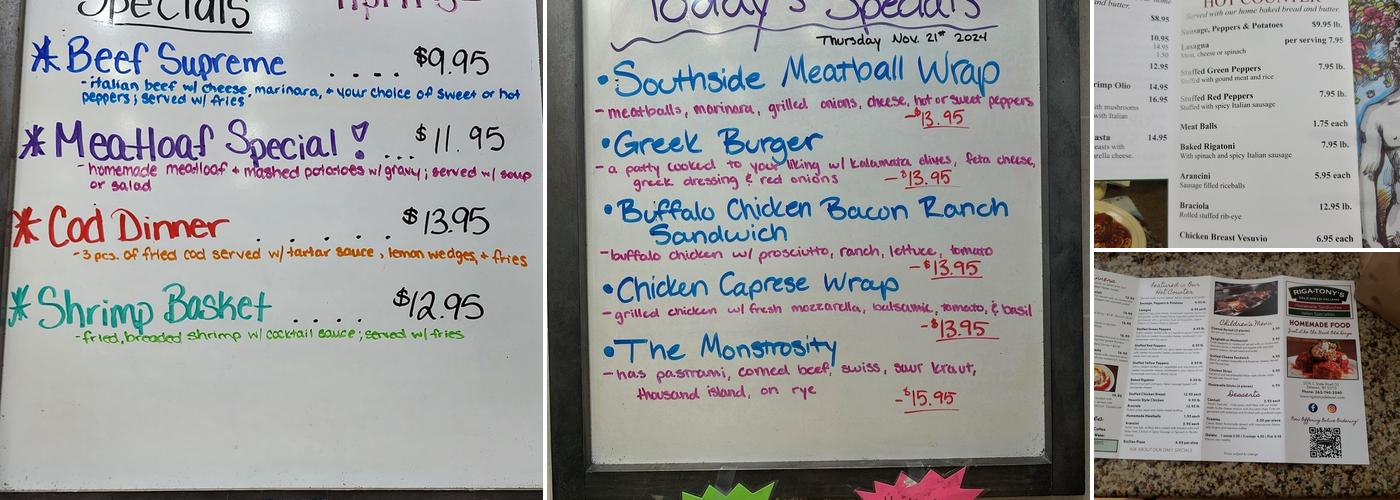 Specials
* Beef Supreme .... $9.95
-italian beef w/ cheese, marinara, + your choice of sweet or hot
peppers; served w/ fries
* Meatloaf Special! ... $11.95
- homemade meatloaf + mashed potatoes w/ gravy; served w/ soup
or salad
* Cod Dinner ..... $13.95
-3 pcs. of fried cod served w/ tartar sauce, lemon wedges, + fries
* Shrimp Basket .... $12.95
-fried, breaded shrimp w/ cocktail sauce; served w/ fries
Today's Specials
Thursday Nov. 21st 2024
• Southside Meatball Wrap
- meatballs, marinara, grilled onions, cheese, hot or sweet peppers
-$13.95
• Greek Burger
- a patty cooked to your liking w/ kalamata olives, feta cheese,
greek dressing & red onions -$13.95
• Buffalo Chicken Bacon Ranch
Sandwich
-buffalo chicken w/ prosciutto, ranch, lettuce, tomato
-$13.95
• Chicken Caprese Wrap
- grilled chicken w/ fresh mozzarella, balsamic, tomato, & basil
-$13.95
• The Monstrosity
- has pastrami, corned beef, swiss, saur kraut,
thousand island, on rye
-$15.95
and butter.
$8.95
10.95
14.95
1.50
12.95
rimp Olio 14.95
16.95
with mushrooms
with Italian
asta 14.95
easts with
arella cheese.
HOT COUNTER
Served with our home baked bread and butter.
Sausage, Peppers & Potatoes $9.95 lb.
Lasagna per serving 7.95
Meat, cheese or spinach
Stuffed Green Peppers 7.95 lb.
Stuffed with gound meat and rice
Stuffed Red Peppers 7.95 lb.
Stuffed with spicy Italian sausage
Meat Balls 1.75 each
Baked Rigatoni 7.95 lb.
With spinach and spicy Italian sausage
Arancini 5.95 each
Sausage filled riceballs
Braciola 12.95 lb.
Rolled stuffed rib-eye
Chicken Breast Vesuvio 6.95 each
Featured in Our
Hot Counter
Sausage, Peppers & Potatoes
Lasagna
Stuffed Green Peppers
Stuffed Red Peppers
Stuffed Yellow Peppers
Baked Rigatoni
Stuffed Chicken Breast
Vesuvio Style Chicken
Braciola
Homemade Meatballs
Arancini
Sicilian Pizza
ASK ABOUT OUR DAILY SPECIALS
Children's Menu
Grilled Cheese Sandwich
Chicken Strips
Mozzarella Sticks
Desserts
Cannoli
Tiramisu
Gelato
RIGA-TONY'S
HOMEMADE FOOD
Just like the Good Old Days
Now Offering Online Ordering!